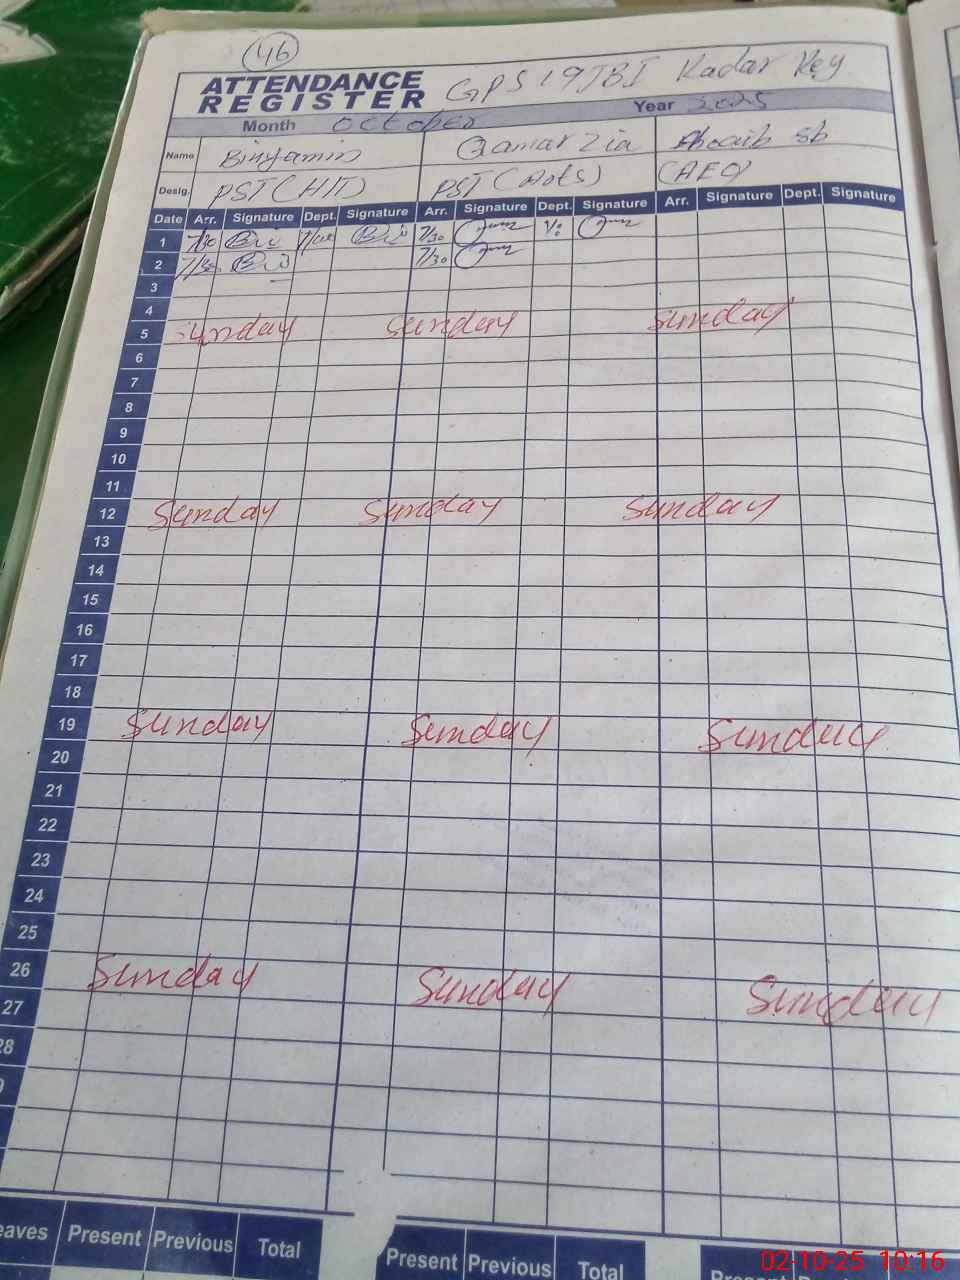 46
ATTENDANCE
REGISTER
GPS 19TBI Kadar Key
Month October Year 2025
Name Binyamin Qamar Zia Shoaib sb
Desig. PST (HT) PST (Aots) (AEO)
Date Arr. Signature Dept. Signature Arr. Signature Dept. Signature Arr. Signature Dept. Signature
1 7/30 7/30
2 7/30 7/30
3
4
5 Sunday Sunday Sunday
6
7
8
9
10
11
12 Sunday Sunday Sunday
13
14
15
16
17
18
19 Sunday Sunday Sunday
20
21
22
23
24
25
26 Sunday Sunday Sunday
27
28
9
eaves Present Previous Total Present Previous Total Present
02-10-25 10:16